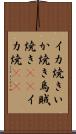 イカ焼きい
か焼き烏賊
焼きイ
カ焼